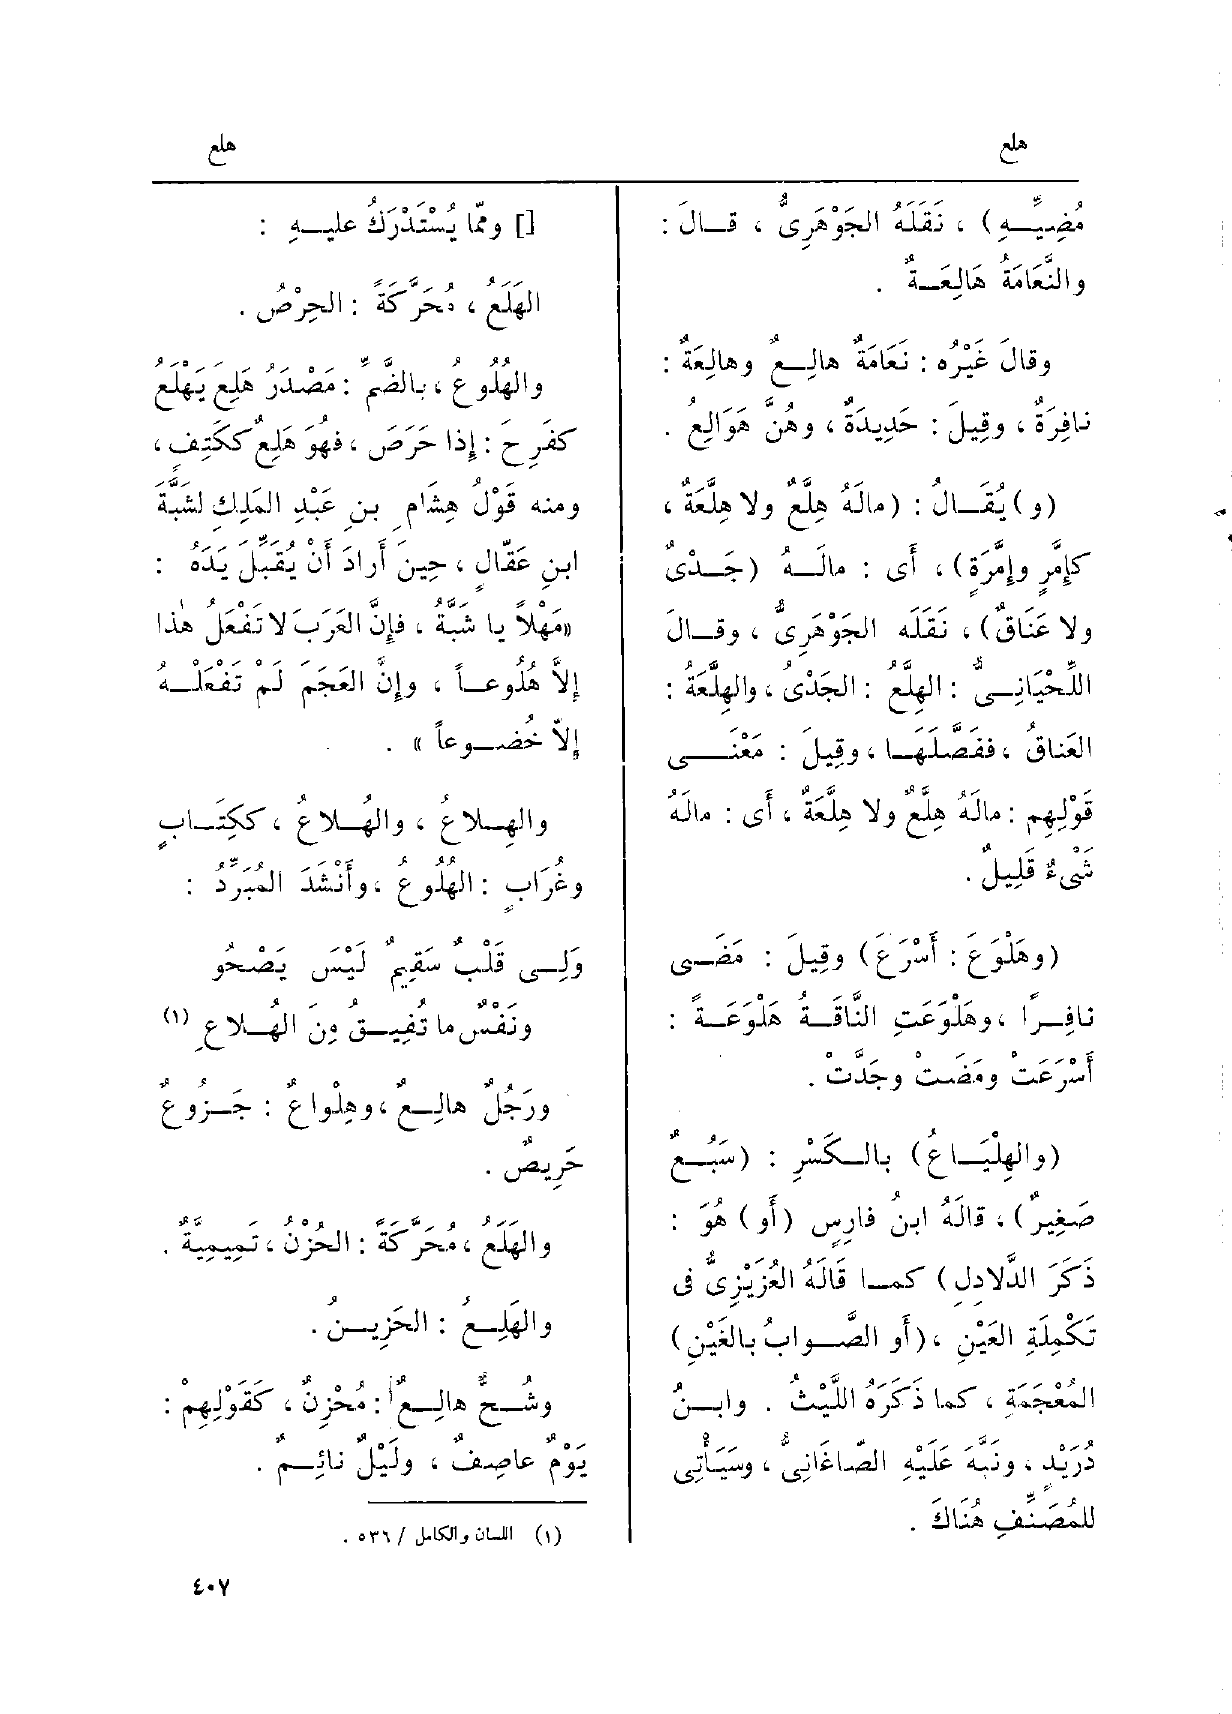 هلع
هلع
مُضِيِّهِ) ، نَقَلَهُ الجَوْهَرِىُّ ، قالَ :
والنَّعَامَةُ هَالِعَةٌ .
وقالَ غَيْرُه : نَعَامَةٌ هالِعٌ وهالِعَةٌ :
نافِرَةٌ ، وقِيلَ : حَدِيدَةٌ ، وهُنَّ هَوَالِعُ .
(و) يُقَالُ : (مالَهُ هِلَّعٌ ولا هِلَّعَةٌ ،
كإِمَّرٍ وإِمَّرَةٍ) ، أى : مالَهُ (جَدْىٌ
ولا عَنَاقٌ) ، نَقَلَه الجَوْهَرِىُّ ، وقالَ
اللِّحْيَانِىُّ : الهِلَّعُ : الجَدْىُ ، والهِلَّعَةُ :
العَناقُ ، ففَصَّلَهَا ، وقِيلَ : مَعْنَى
قَوْلِهِم : مالَهُ هِلَّعٌ ولا هِلَّعَةٌ ، أى : مالَهُ
شَىْءٌ قَلِيلٌ .
(وهَلْوَعَ : أَسْرَعَ) وقِيلَ : مَضَى
نافِرًا ، وهَلْوَعَتِ النَّاقَةُ هَلْوَعَةً :
أَسْرَعَتْ ومَضَتْ وجَدَّتْ .
(والهِلْيَاعُ) بالكَسْرِ : (سَبُعٌ
صَغِيرٌ) ، قالَهُ ابنُ فارِسٍ (أو) هُوَ :
ذَكَرَ الدَّلادِلِ) كما قَالَهُ العُزَيْزِىُّ فى
تَكْمِلَةِ العَيْنِ ، (أو الصَّوابُ بالغَيْنِ)
المُعْجَمَةِ ، كما ذَكَرَهُ اللَّيْثُ . وابنُ
دُرَيْدٍ ، ونَبَّهَ عَلَيْهِ الصّاغَانِىُّ ، وسَيَأْتِى
للمُصَنِّفِ هُنَاكَ .
[] وممّا يُسْتَدْرَكُ عليهِ :
الهَلَعُ ، مُحَرَّكَةً : الحِرْصُ .
والهُلُوعُ ، بالضَّمِّ : مَصْدَرُ هَلِعَ يَهْلَعُ
كفَرِحَ : إذا حَرَصَ ، فهُوَ هَلِعٌ ككَتِفٍ ،
ومنه قَوْلُ هِشامِ بنِ عَبْدِ المَلِكِ لشَبَّةَ
ابنِ عَقَّالٍ ، حِينَ أَرادَ أَنْ يُقَبِّلَ يَدَهُ :
«مَهْلاً يا شَبَّةُ ، فإِنَّ العَرَبَ لا تَفْعَلُ هٰذا
إلاَّ هُلُوعاً ، وإِنَّ العَجَمَ لَمْ تَفْعَلْهُ
إلاّ خُضُوعاً» .
والهِلاعُ ، والهُلاعُ ، ككِتَابٍ
وغُرَابٍ : الهُلُوعُ ، وأَنْشَدَ المُبَرِّدُ :
ولِى قَلْبٌ سَقِيمٌ لَيْسَ يَصْحُو
ونَفْسٌ ما تُفِيقُ مِنَ الهُلاعِ (١)
ورَجُلٌ هالِعٌ ، وهِلْواعٌ : جَزُوعٌ
حَرِيصٌ .
والهَلَعُ ، مُحَرَّكَةً : الحُزْنُ ، تَمِيمِيَّةٌ .
والهَلِعُ : الحَزِينُ .
وشُحٌّ هالِعٌ : مُحْزِنٌ ، كَقَوْلِهِمْ :
يَوْمٌ عاصِفٌ ، ولَيْلٌ نائِمٌ .
(١) اللسان والكامل / ٥٣٦ .
٤٠٧